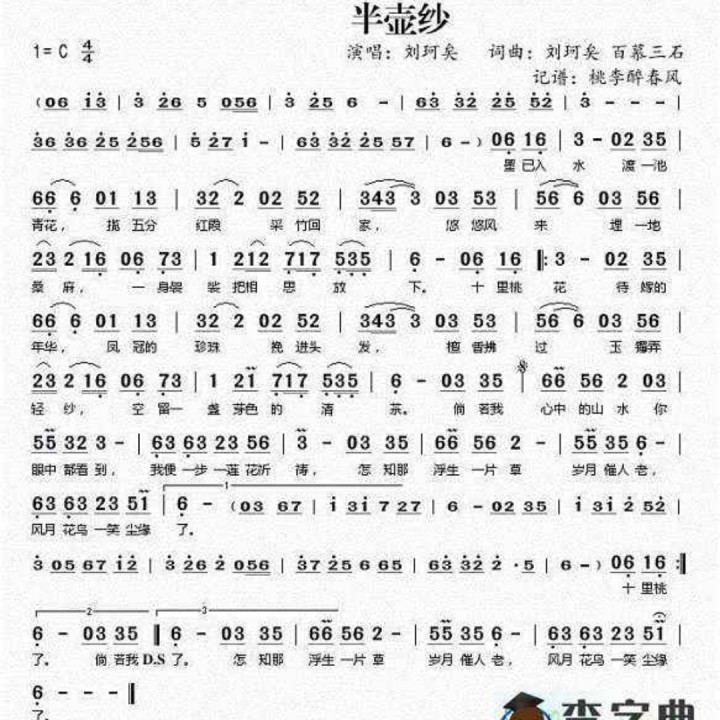 半壶纱
1=C 4/4 演唱：刘珂矣 词曲：刘珂矣 百慕三石
记谱：桃李醉春风
(06 i3 | 3 26 5 056 | 3 25 6 - | 63 32 25 52 |
36 36 25 256 | 5 27 i - | 63 32 25 57 | 6 - ) 06 16 | 3 - 02 35 |
墨已入 水 渡一池
66 6 01 13 | 32 2 02 52 | 343 3 03 53 | 56 6 03 56 |
青花， 揽五分 红霞 采竹回 家， 悠悠风 来 埋一地
23 2 16 06 73 | 1 212 717 535 | 6 - 06 16 |: 3 - 02 35 |
桑麻， 一身袈 裟把相思放 下。 十里桃 花 待嫁的
66 6 01 13 | 32 2 02 52 | 343 3 03 53 | 56 6 03 56 |
年华， 凤冠的 珍珠 挽进头 发， 檀香拂 过 玉镯弄
23 2 16 06 73 | 1 21 717 535 | 6 - 03 35 | 66 56 2 03 |
轻纱， 空留一 盏芽色的清 茶。 倘若我 心中的山水 你
55 32 3 - | 63 63 63 56 | 3 - 03 35 | 66 56 2 - | 55 35 6 - |
眼中都看到， 我便一步一莲花祈 祷， 怎知那 浮生一片草 岁月催人老，
1
63 63 23 51 | 6 - (03 35 | i3 i 27 35 | 6 - 02 35 | i3i 27 5 - |
风月花鸟一笑尘缘 了。
3 05 67 i2 | 3 26 2 056 | 3 25 6 - | 63 32 2· 5 | 6 - ) 06 16 :|
十里桃
2 3
6 - 03 35 ‖ 6 - 03 35 | 66 56 2 - | 55 35 6 - | 63 63 23 51 |
了。 倘若我 D.S 了。 怎知那 浮生一片草 岁月催人老， 风月花鸟一笑尘缘
6 - - - ‖
了。
查字典